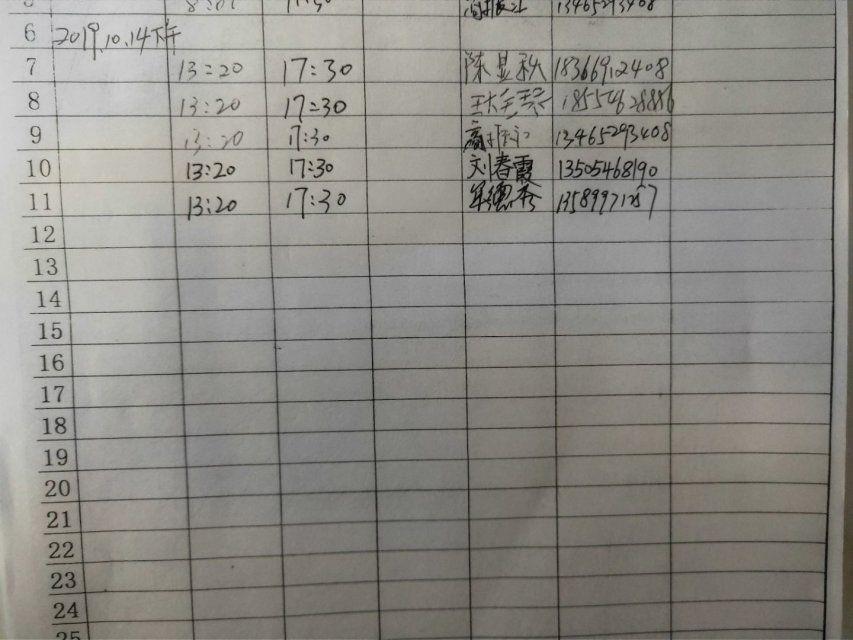 13465293408
6 2019.10.14下午
7 13:20 17:30 陈显秋 18366912408
8 13:20 17:30 18554628886
9 13:20 17:30 13465293408
10 13:20 17:30 刘春霞 13505468190
11 13:20 17:30
12
13
14
15
16
17
18
19
20
21
22
23
24
25